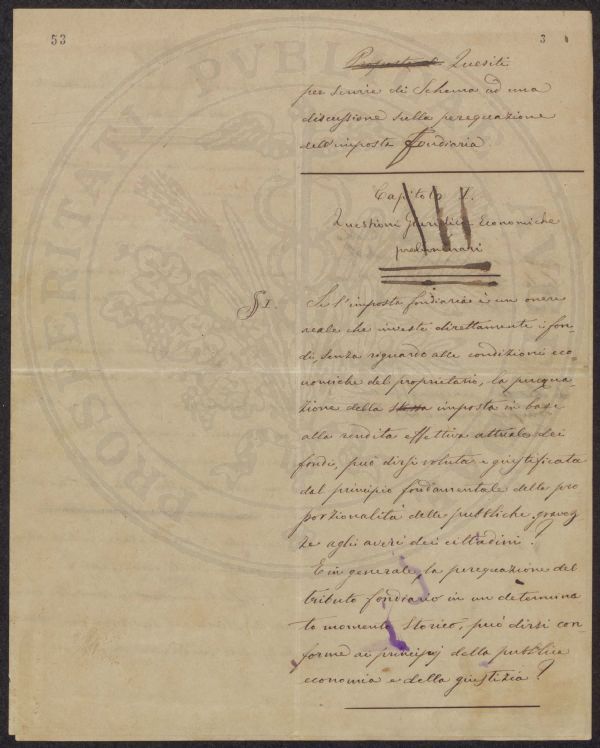 53
3
Proposta di Quesiti
per servire di Schema ad una
discussione sulla perequazione
dell'imposta fondiaria
Capitolo I.
Questioni Giuridico Economiche
preliminari
§ 1.
Se l'imposta fondiaria è un onere
reale che investe direttamente i fon-
di, senza riguardo alle condizioni eco-
nomiche del proprietario, la perequa-
zione della stessa imposta in base
alla rendita effettiva attuale dei
fondi, può dirsi voluta e giustificata
dal principio fondamentale della pro
porzionalità delle pubbliche gravez
ze agli averi dei cittadini?
E in generale, la perequazione del
tributo fondiario in un determina
to momento storico, può dirsi con
forme ai principj della pubblica
economia e della giustizia?
PROSPERITATI PVBLI